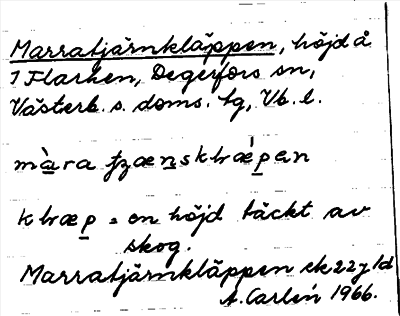 Marratjärnkläppen, höjd å
7 Flarken, Degerfors sn,
Västerb. s. doms. tg, Vb. l.
màra tjzænsklrǽpen
klræp = en höjd täckt av
skog.
Marratjärnkläppen ek 22 j 1d
A. Carlén 1966.